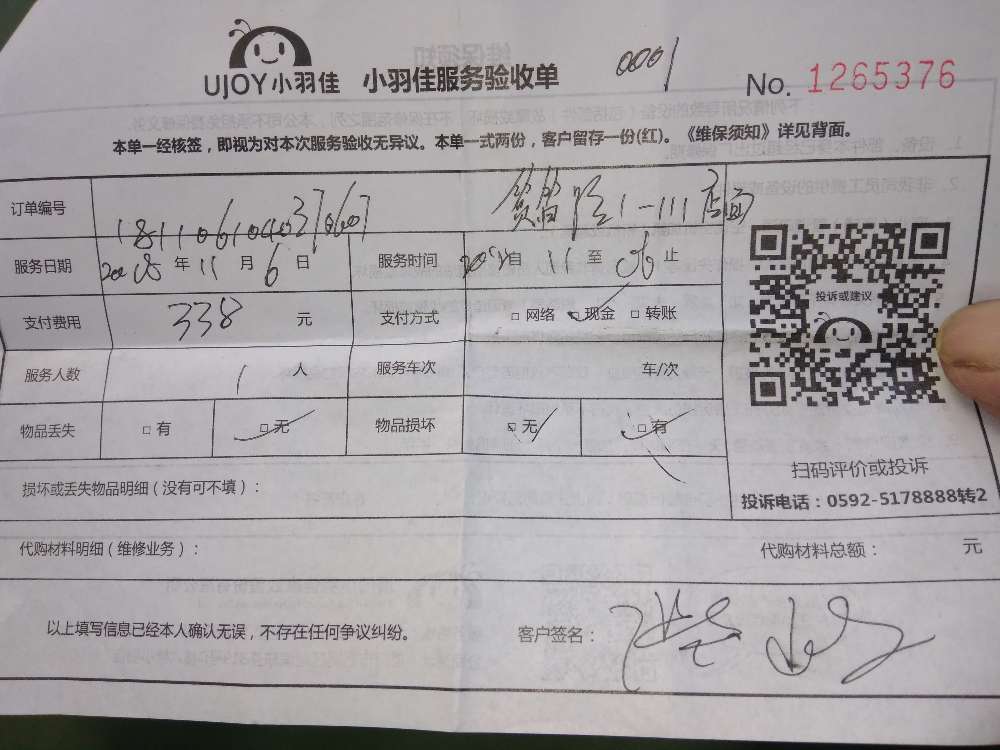 UJOY小羽佳 小羽佳服务验收单 0001 No. 1265376
本单一经核签，即视为对本次服务验收无异议。本单一式两份，客户留存一份(红)。《维保须知》详见背面。
订单编号 1-111店面
服务日期 年 11 月 6 日 服务时间 自 11 至 止
支付费用 338 元 支付方式 □ 网络 □ 现金 □ 转账
服务人数 1 人 服务车次 车/次
物品丢失 □ 有 □ 无 物品损坏 □ 无 □ 有
投诉或建议
扫码评价或投诉
投诉电话：0592-5178888转2
损坏或丢失物品明细（没有可不填）：
代购材料明细（维修业务）： 代购材料总额： 元
以上填写信息已经本人确认无误，不存在任何争议纠纷。 客户签名：